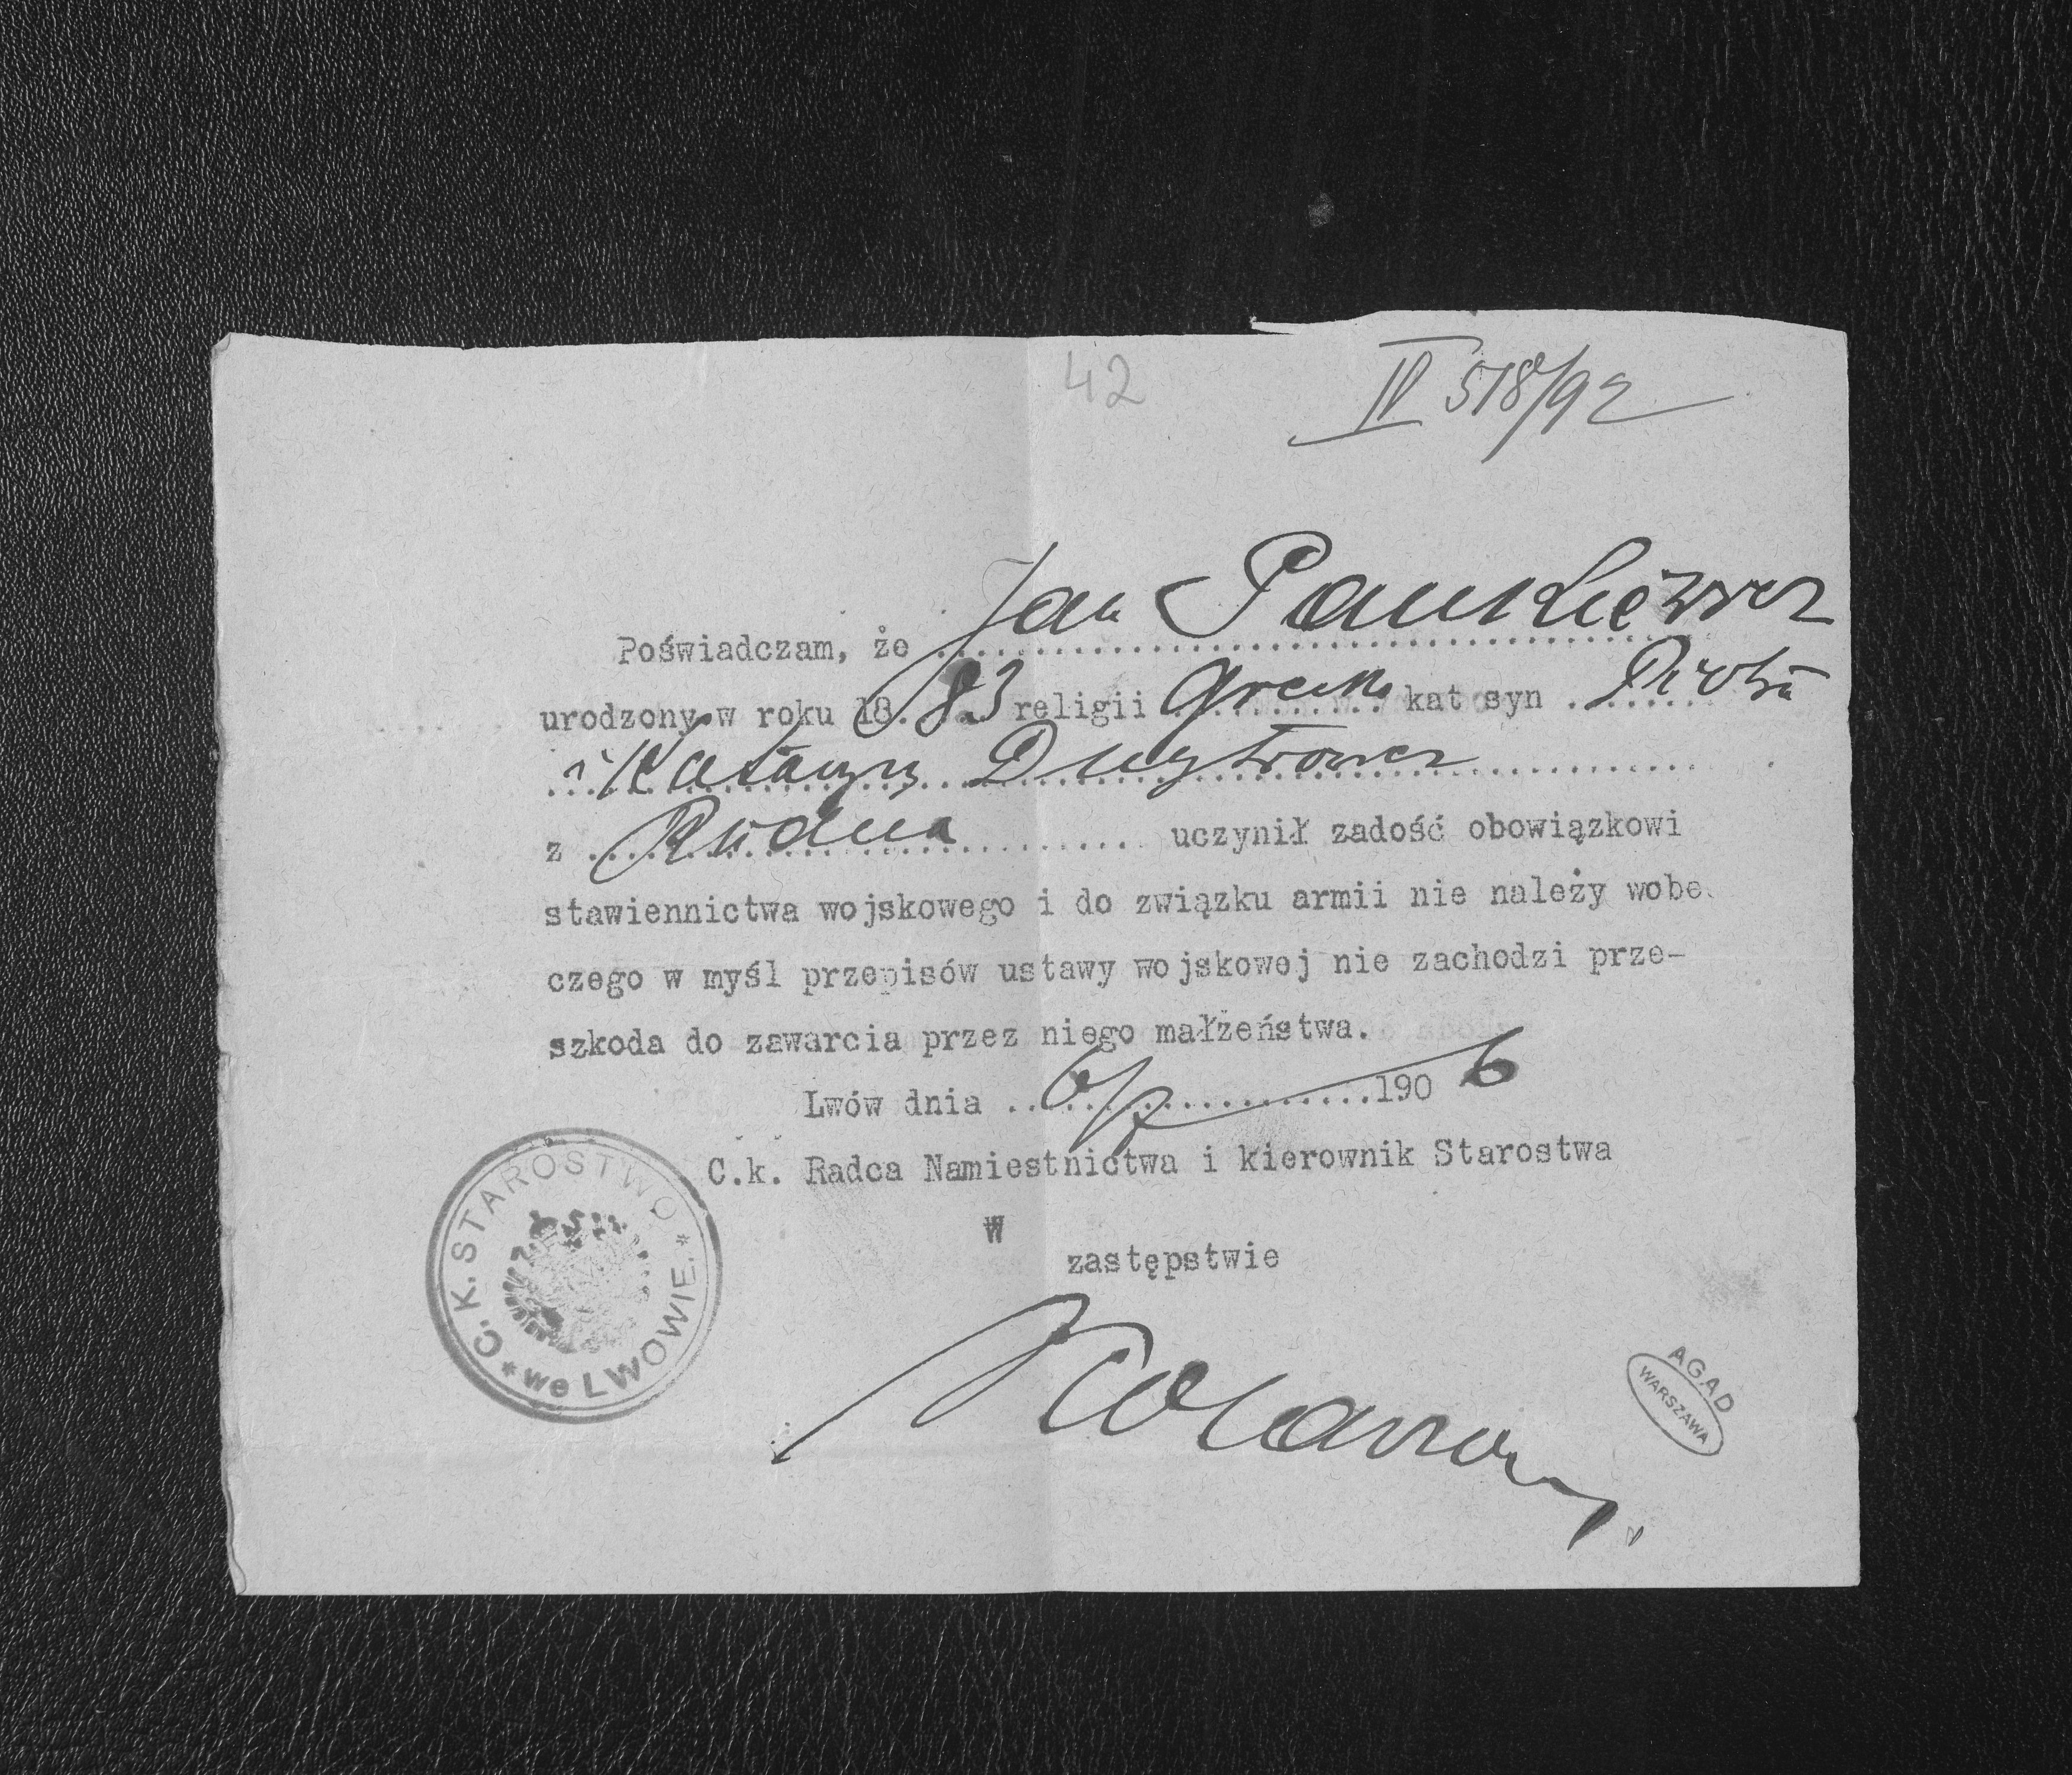 42
IV 518/92
Poświadczam, że Jan Pankiewicz
urodzony w roku 18.83 religii grecko kat syn Piotra
i Katarzyny Dmytrowicz
z Rudna uczynił zadość obowiązkowi
stawiennictwa wojskowego i do związku armii nie należy wobe
czego w myśl przepisów ustawy wojskowej nie zachodzi prze-
szkoda do zawarcia przez niego małżeństwa.
Lwów dnia 6/2 1906
C.k. Radca Namiestnictwa i kierownik Starostwa
W
zastępstwie
C.K. STAROSTWO * we LWOWIE. *
AGAD
WARSZAWA